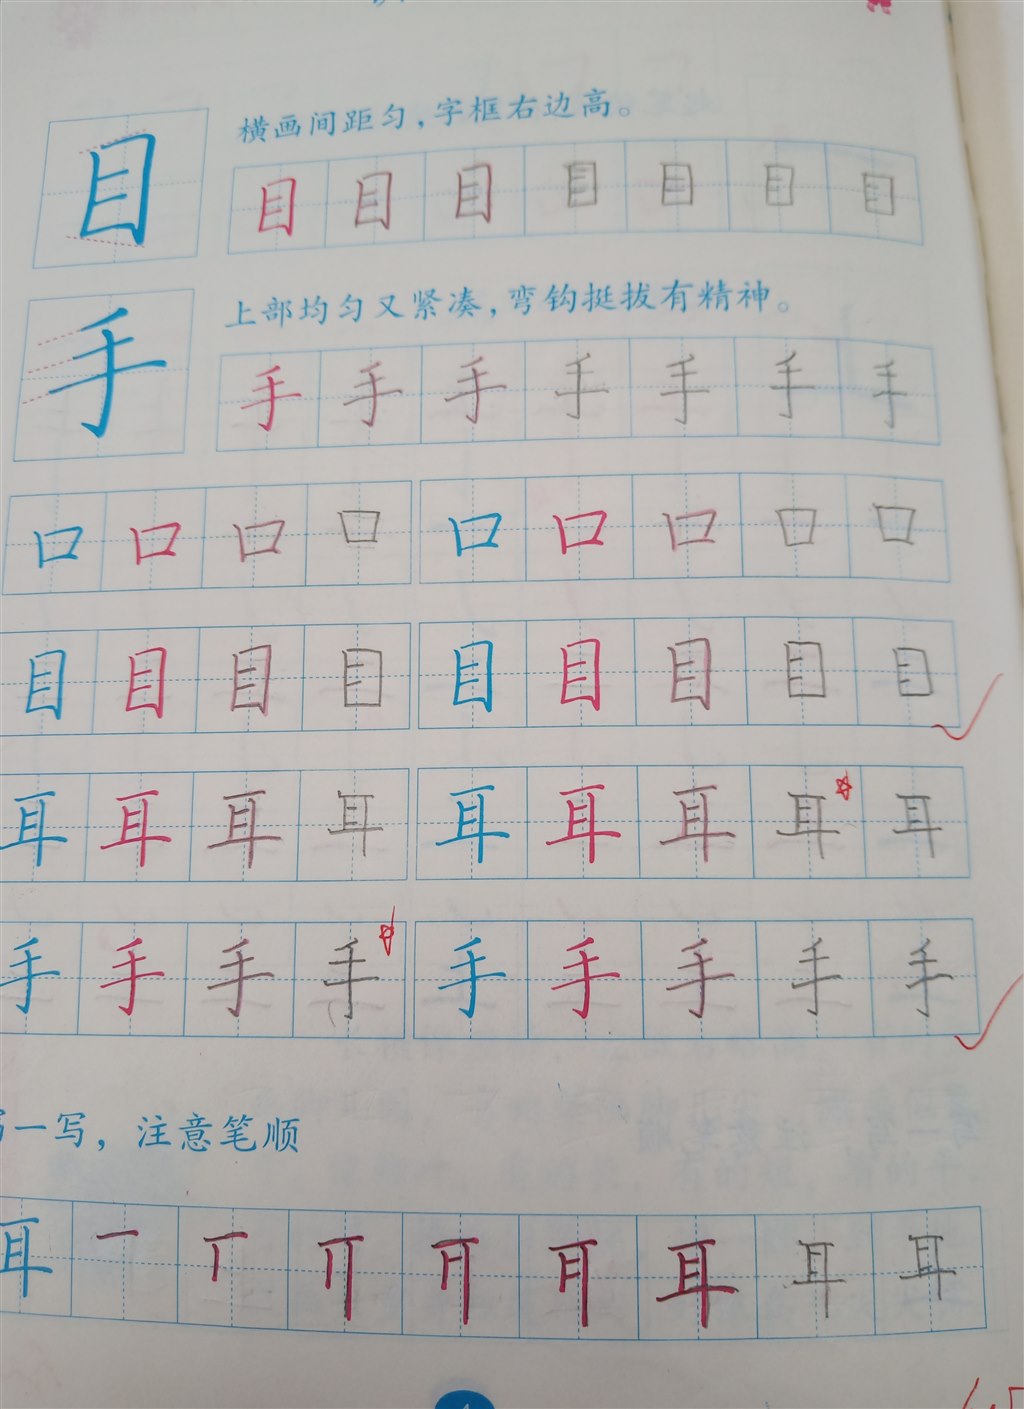 横画间距匀，字框右边高。
目 目 目 目 目 目 目 目
上部均匀又紧凑，弯钩挺拔有精神。
手 手 手 手 手 手 手 手
口 口 口 口 口 口 口 口 口
目 目 目 目 目 目 目 目 目
耳 耳 耳 耳 耳 耳 耳 耳 耳
手 手 手 手 手 手 手 手 手
写一写，注意笔顺
耳 耳 耳 耳